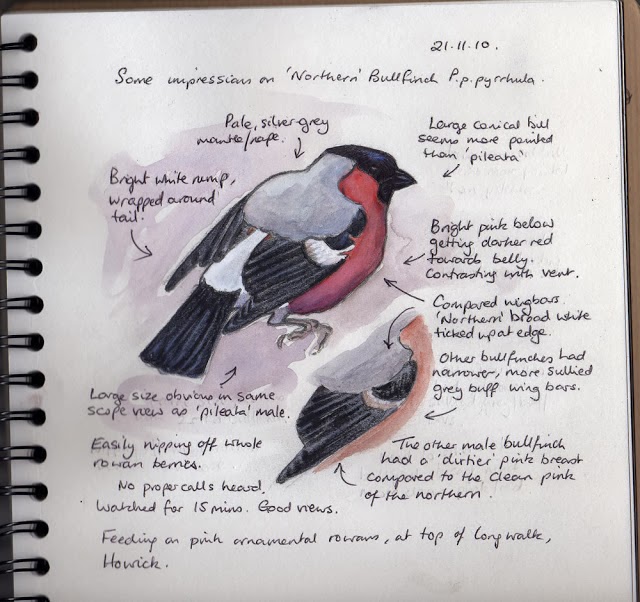 21.11.10.
Some impressions on 'Northern' Bullfinch P.p.pyrrhula.
Pale, silver-grey
mantle/nape.
Large conical bill
seems more pointed
than 'pileata'
Bright white rump,
wrapped around
tail.
Bright pink below
getting darker red
towards belly.
Contrasting with vent.
Compared wingbars.
'Northern' broad white
ticked up at edge.
Other bullfinches had
narrower, more sullied
grey buff wing bars.
Large size obvious in same
scope view as 'pileata' male.
The other male bullfinch
had a 'dirtier' pink breast
compared to the clean pink
of the northern.
Easily nipping off whole
rowan berries.
No proper calls heard.
Watched for 15 mins. Good views.
Feeding on pink ornamental rowans, at top of long walk,
Howick.